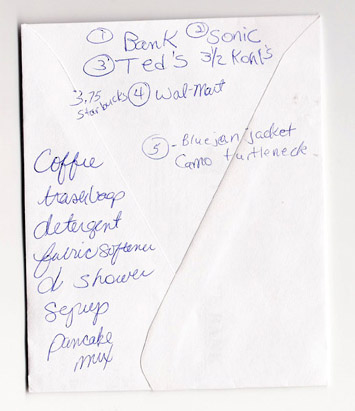 ① Bank ② Sonic
③ Ted's 3½ Kohl's
3.75
Starbucks ④ Wal-Mart
⑤ - Blue jean jacket
Camo turtleneck
Coffie
trashbags
detergent
fabric softener
d shower
serup
pancake
mix